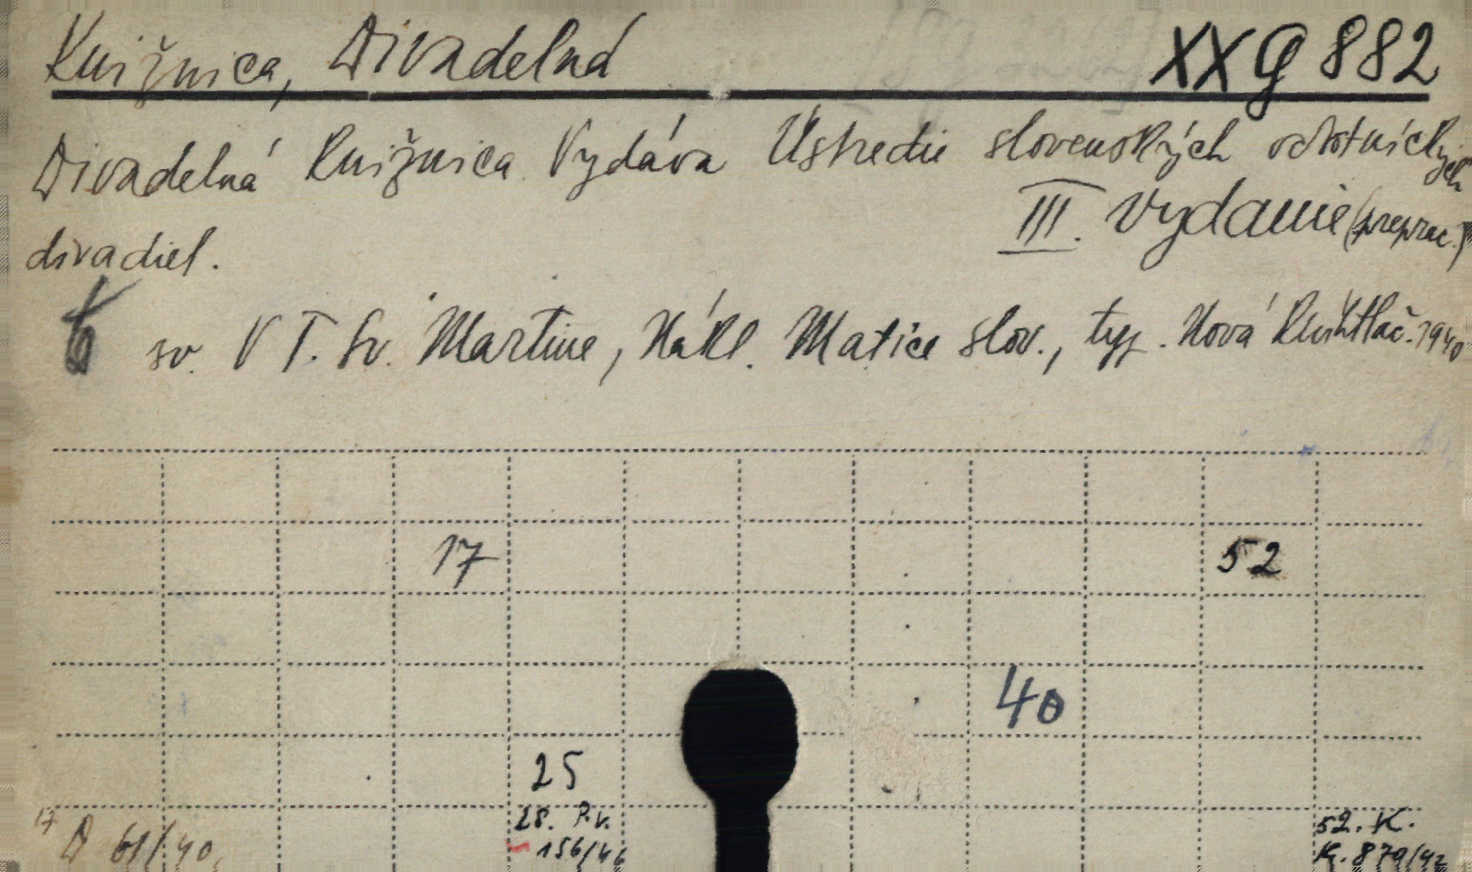 Knižnica, Divadelná XX G 882
Divadelná knižnica. Vydáva Ústredie slovenských ochotníckych
III. vydanie (preprac.)
divadiel.
6 sv. V T. Sv. Martine, Nákl. Matice slov., typ. Nová Kníhtlač. 1940
17 52
40
25
17 28. P.v. 52. K.
D 61/40, 156/46 K. 879/42